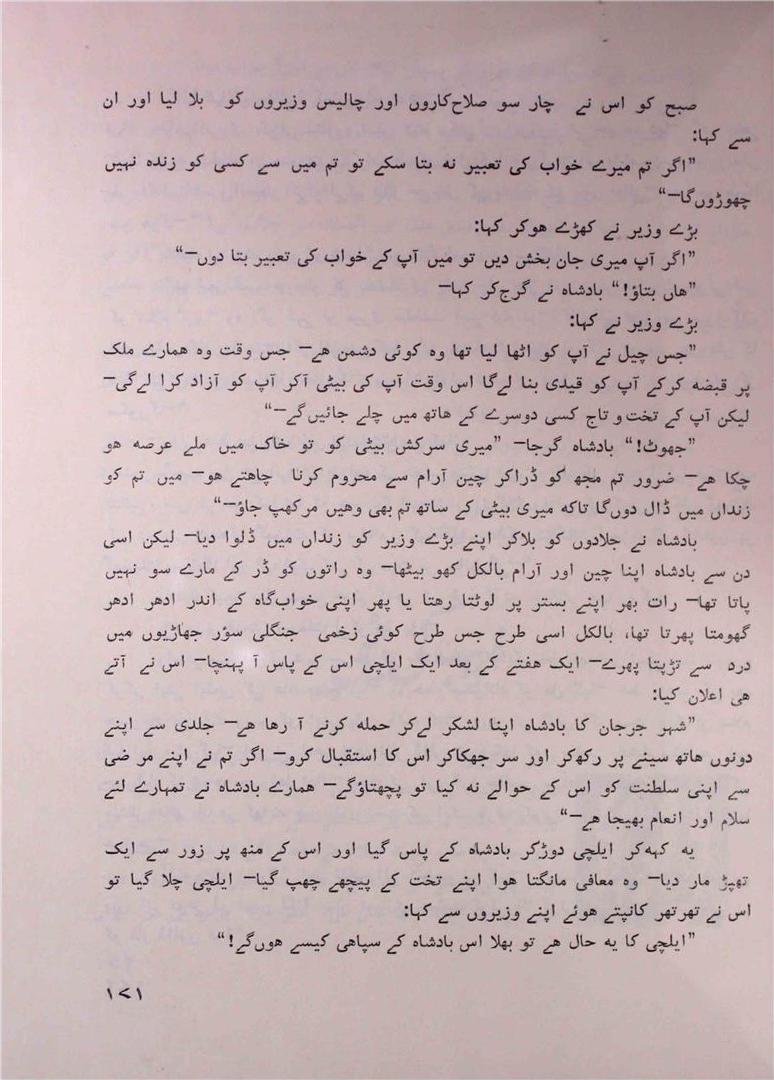 صبح کو اس نے چار سو صلاح‌کاروں اور چالیس وزیروں کو بلا لیا اور ان
سے کہا:
”اگر تم میرے خواب کی تعبیر نه بتا سکے تو تم میں سے کسی کو زنده نہیں
چھوڑوں‌گا—“
بڑے وزیر نے کھڑے هوکر کہا:
”اگر آپ میری جان بخش دیں تو میں آپ کے خواب کی تعبیر بتا دوں—“
”هاں بتاؤ!“ بادشاه نے گرج‌کر کہا—
بڑے وزیر نے کہا:
”جس چیل نے آپ کو اٹھا لیا تھا وه کوئی دشمن هے— جس وقت وه همارے ملک
پر قبضه کرکے آپ کو قیدی بنا لےگا اس وقت آپ کی بیٹی آکر آپ کو آزاد کرا لےگی—
لیکن آپ کے تخت و تاج کسی دوسرے کے هاتھ میں چلے جائیں‌گے—“
”جھوٹ!“ بادشاه گرجا— ”میری سرکش بیٹی کو تو خاک میں ملے عرصه هو
چکا هے— ضرور تم مجھ کو ڈراکر چین آرام سے محروم کرنا چاهتے هو— میں تم کو
زنداں میں ڈال دوں‌گا تاکه میری بیٹی کے ساتھ تم بھی وهیں مرکھپ جاؤ—“
بادشاه نے جلادوں کو بلاکر اپنے بڑے وزیر کو زنداں میں ڈلوا دیا— لیکن اسی
دن سے بادشاه اپنا چین اور آرام بالکل کھو بیٹھا— وه راتوں کو ڈر کے مارے سو نہیں
پاتا تھا— رات بھر اپنے بستر پر لوٹتا رهتا یا پھر اپنی خواب‌گاه کے اندر ادهر ادهر
گھومتا پھرتا تھا، بالکل اسی طرح جس طرح کوئی زخمی جنگلی سؤر جھاڑیوں میں
درد سے تڑپتا پھرے— ایک هفتے کے بعد ایک ایلچی اس کے پاس آ پہنچا— اس نے آتے
هی اعلان کیا:
”شہر جرجان کا بادشاه اپنا لشکر لےکر حمله کرنے آ رها هے— جلدی سے اپنے
دونوں هاتھ سینے پر رکھ‌کر اور سر جھکاکر اس کا استقبال کرو— اگر تم نے اپنے مر ضی
سے اپنی سلطنت کو اس کے حوالے نه کیا تو پچھتاؤگے— همارے بادشاه نے تمہارے لئے
سلام اور انعام بھیجا هے—“
یه کہه‌کر ایلچی دوڑکر بادشاه کے پاس گیا اور اس کے منھ پر زور سے ایک
تھپڑ مار دیا— وه معافی مانگتا هوا اپنے تخت کے پیچھے چھپ گیا— ایلچی چلا گیا تو
اس نے تھرتھر کانپتے هوئے اپنے وزیروں سے کہا:
”ایلچی کا یه حال هے تو بھلا اس بادشاه کے سپاهی کیسے هوں‌گے!“
۱۷۱